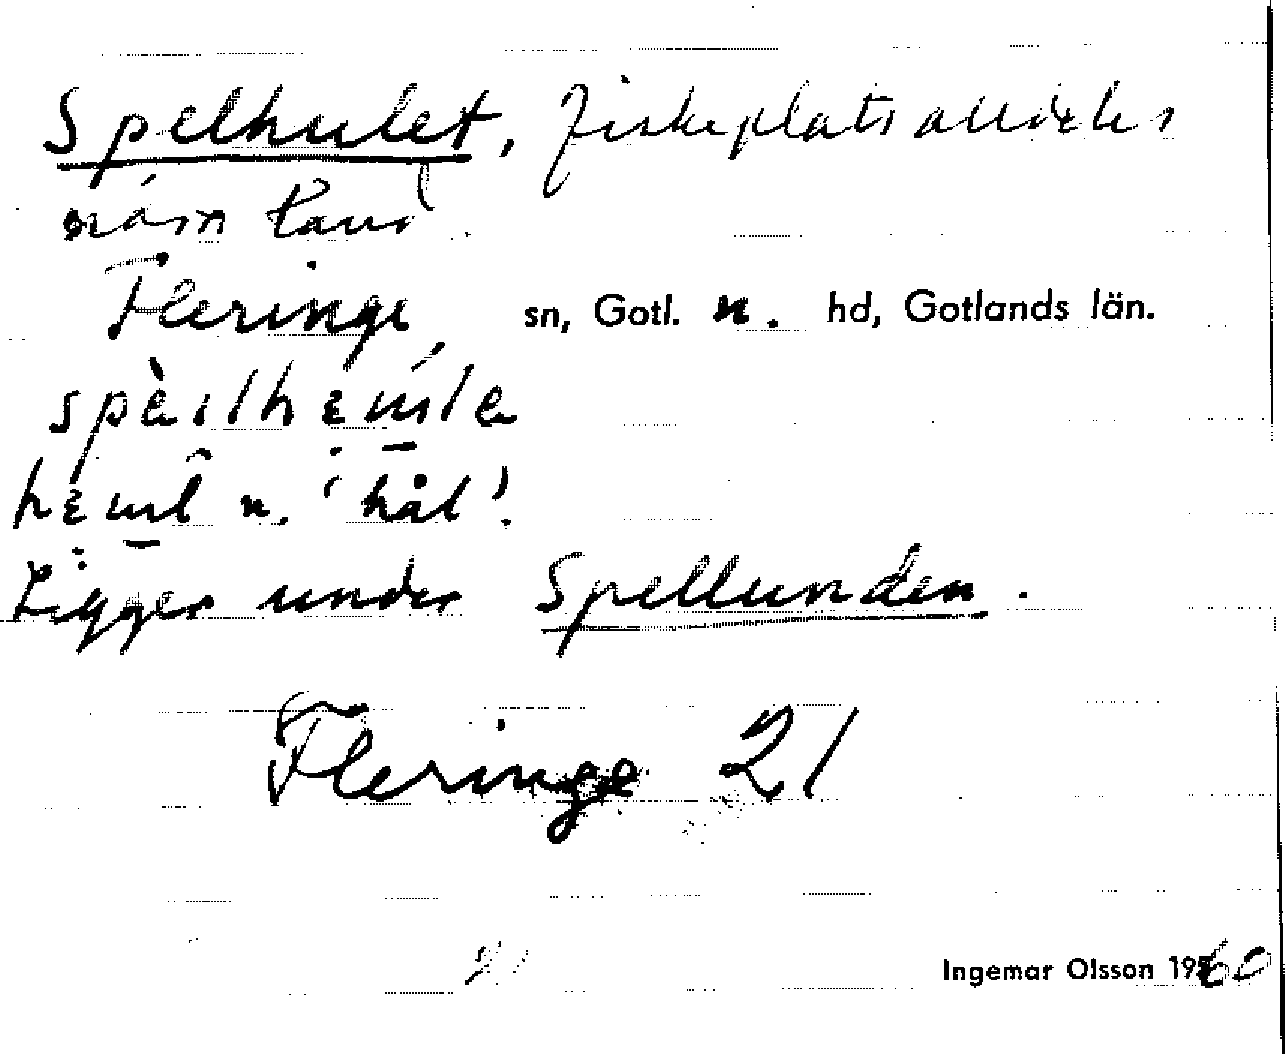 Spelhulet, fiskeplats alldeles
nära land.
Fleringe sn, Gotl. n. hd, Gotlands län.
n. 'hål'.
Ligger under Spellunden.
Fleringe 21
Ingemar Olsson 1960